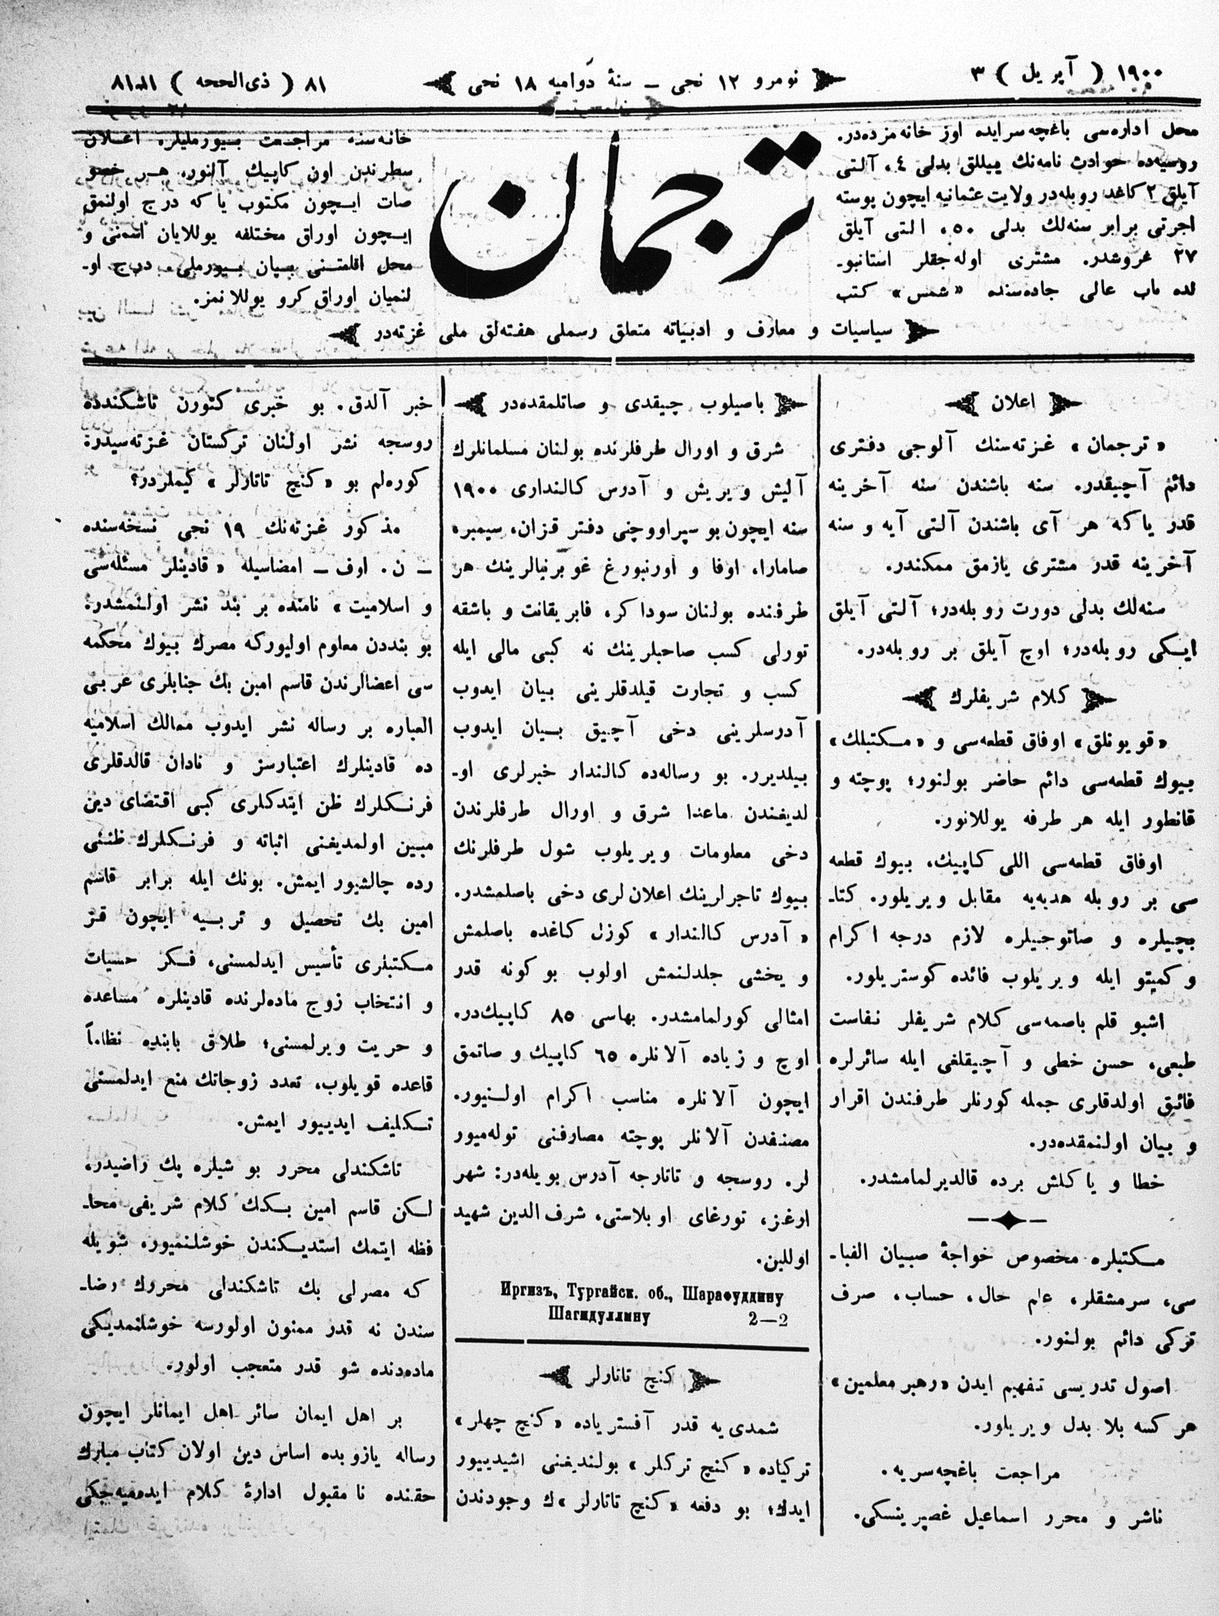 ١٩٠٠ ( آپریل ) ٣
نومرو ١٢ نجی ــ سنهٔ دوامیه ١٨ نجی
٨١ ( ذی‌الحجه )
محل اداره‌سی باغچه سرایده اوز خانه مزده‌در.
روسیه‌ده حوادث نامه‌نك ییللق بدلی ٤، آلتی
آیلق ٢ كاغد روبله‌در ولایت عثمانیه ایچون پوسته
اجرتی برابر سنه‌لك بدلی ٥٠، التی آیلق
٢٧ غروشدر. مشتری اوله‌جقلر استانبو۔
لده باب عالی جاده‌سنده «شمس» كتب
ترجمان
خانه‌سنه مراجعت بیورملیلر. اعلان
سطرندن اون كاپیك آلنور، هر خصو
صات ایچون مكتوب یا كه درج اولنمق
ایچون اوراق مختلفه یوللایان اسمنی و
محل اقلمتنی بیان بیورملی. درج او۔
لنمیان اوراق كرو یوللانمز.
سیاسیات و معارف و ادبیاته متعلق رسملی هفته‌لق ملی غزته‌در
اعلان
«ترجمان» غزته‌سنك آلوجی دفتری
دائم آچیقدر. سنه باشندن سنه آخرینه
قدر یا كه هر آی باشندن آلتی آیه و سنه
آخرینه قدر مشتری یازمق ممكندر.
سنه‌لك بدلی دورت روبله‌در؛ آلتی آیلق
ایكی روبله‌در؛ اوچ آیلق بر روبله‌در.
كلام شریفلرك
«قویونلق» اوفاق قطعه‌سی و «مكتبلك»
بیوك قطعه‌سی دائم حاضر بولنور؛ پوچته و
قانطور ایله هر طرفه یوللانور.
اوفاق قطعه‌سی اللی كاپیك، بیوك قطعه
سی بر روبله هدیه‌یه مقابل ویریلور. كتا۔
بچیلره و صاتوجیلره لازم درجه اكرام
و كمیتو ایله ویریلوب فائده كوستریلور.
اشبو قلم باصمه‌سی كلام شریفلر نفاست
طبعی، حسن خطی و آچیقلغی ایله سائرلره
فائق اولدقلری جمله كورنلر طرفندن اقرار
و بیان اولنمقده‌در.
خطا و یا كلش برده قالدیرلمامشدر.
مكتبلره مخصوص خواجهٔ صبیان الفبا۔
سی، سرمشقلر، علم حال، حساب، صرف
تركی دائم بولنور.
اصول تدریسی تفهیم ایدن «رهبر معلمین»
هر كسه بلا بدل ویریلور.
مراجعت باغچه‌سریه.
ناشر و محرر اسماعیل غصپرینسكی.
باصیلوب چیقدی و صاتلمقده‌در
شرق و اورال طرفلرنده بولنان مسلمانلرك
آلیش ویریش و آدرس كالنداری ١٩٠٠
سنه ایچون بو سپراووچنی دفتر قزان، سیمبر،
صامارا، اوفا و اورنبورغ غوبرنیالرینك هر
طرفنده بولنان سوداكر، فابریقانت و باشقه
تورلی كسب صاحبلرینك نه كبی مالی ایله
كسب و تجارت قیلدقلرینی بیان ایدوب
آدرسلرینی دخی آچیق بیان ایدوب
بیلدیرر. بو رساله‌ده كالندار خبرلری او۔
لدیغندن ماعدا شرق و اورال طرفلرندن
دخی معلومات ویریلوب شول طرفلرنك
بیوك تاجرلرینك اعلان لری دخی باصلمشدر.
«آدرس كالندار» كوزل كاغده باصلمش
و یخشی جلدلنمش اولوب بو كونه قدر
امثالی كورلمامشدر. بهاسی ٨٥ كاپیك‌در.
اوچ و زیاده آلانلره ٦٥ كاپیك و صاتمق
ایچون آلانلره مناسب اكرام اولنیور.
مصنفدن آلانلر پوچته مصارفنی توله‌میور
لر. روسجه و تاتارجه آدرس بویله‌در: شهر
اوغز، تورغای اوبلاستی، شرف الدین شهید
اوللین.
Иргизъ, Тургайск. об., Шарафуддину
Шагидуллину 2—2
كنچ تاتارلر
شمدی‌یه قدر آفستریاده «كنچ چهلر»
تركیاده «كنچ تركلر» بولندیغنی اشیدییور
ایدك؛ بو دفعه «كنچ تاتارلر»ك وجودندن
خبر آلدق. بو خبری كتورن تاشكندده
روسجه نشر اولنان تركستان غزته‌سیدر.
كوره‌لم بو «كنچ تاتارلر» كیملردر؟
مذكور غزته‌نك ١٩ نجی نسخه‌سنده
ــ ن. اوف ــ امضاسیله «قادینلر مسئله‌سی
و اسلامیت» نامنده بر بند نشر اولنمشدر.
بو بنددن معلوم اولیوركه مصرك بیوك محكمه
سی اعضالرندن قاسم امین بك جنابلری عربی
العباره بر رساله نشر ایدوب ممالك اسلامیه
ده قادینلرك اعتبارسز و نادان قالدقلری
فرنكلرك ظن ایتدكلری كبی اقتضای دین
مبین اولمدیغنی اثباته و فرنكلرك ظننی
رده چالشیور ایمش. بونك ایله برابر قاسم
امین بك تحصیل و تربیه ایچون قز
مكتبلری تأسیس ایدلمسنی، فكر حسیات
و انتخاب زوج ماده‌لرنده قادینلره مساعده
و حریت ویرلمسنی؛ طلاق بابنده نظاماً
قاعده قویلوب، تعدد زوجاتك منع ایدلمسنی
تكلیف ایدییور ایمش.
تاشكندلی محرر بو شیلره پك راضیدر،
لكن قاسم امین بكك كلام شریفی محا۔
فظه ایتمك استدیكندن خوشلنمیور، شویله
كه مصرلی بك تاشكندلی محررك رضا۔
سندن نه قدر ممنون اولورسه خوشلنمدیكی
ماده‌دنده شو قدر متعجب اولور.
بر اهل ایمان سائر اهل ایمانلر ایچون
رساله یازوبده اساس دین اولان كتاب مبارك
حقنده نا مقبول ادارهٔ كلام ایده‌میه‌جكی